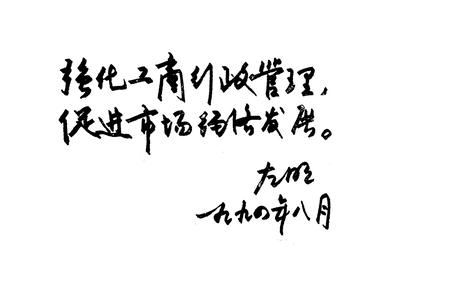 强化工商行政管理，
促进市场经济发展。
左明
一九九四年八月